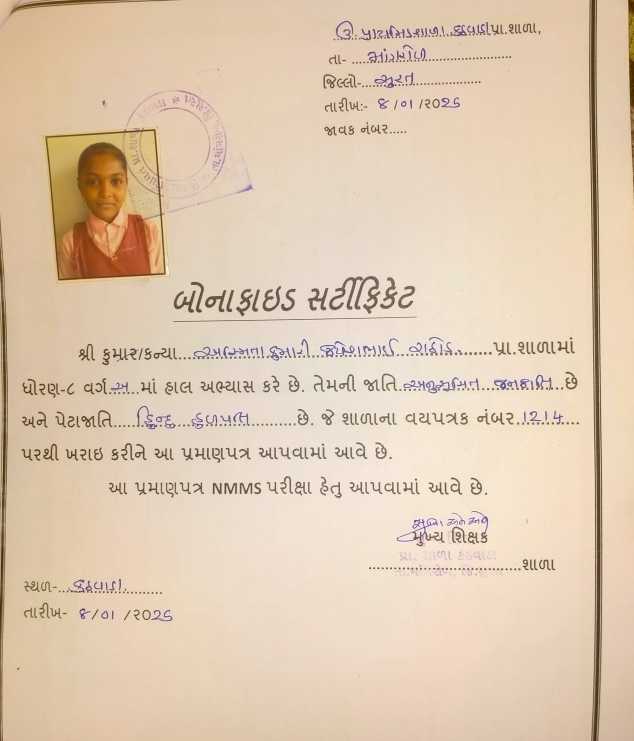 ઉ. પ્રાથમિકશાળા કઠવાડા પ્રા.શાળા,
તા- ....માંગરોળ....
જિલ્લો-....સુરત....
તારીખ:- ૪/૦૧/૨૦૨૬
જાવક નંબર.....
બોનાફાઇડ સર્ટીફિકેટ
શ્રી કુમાર/કન્યા... કુમારી રાઠોડ.......પ્રા.શાળામાં
ધોરણ-૮ વર્ગ..અ...માં હાલ અભ્યાસ કરે છે. તેમની જાતિ..અનુસૂચિત...જનજાતિ..છે
અને પેટાજાતિ....હિન્દુ હળપતિ..........છે. જે શાળાના વયપત્રક નંબર..1214....
પરથી ખરાઇ કરીને આ પ્રમાણપત્ર આપવામાં આવે છે.
આ પ્રમાણપત્ર NMMS પરીક્ષા હેતુ આપવામાં આવે છે.
મુખ્ય શિક્ષક
પ્રા. શાળા કઠવાડા
.................................શાળા
સ્થળ-...કઠવાડા.........
તારીખ- ૪/૦૧/૨૦૨૬